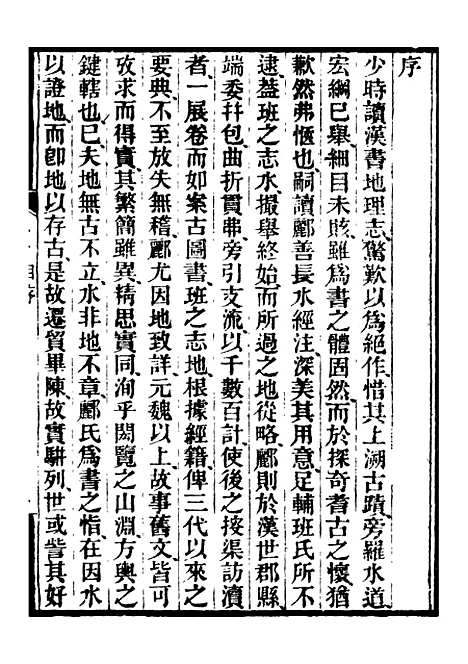 序
少時讀漢書地理志驚歎以爲絕作惜其上溯古蹟旁羅水道
宏綱巳舉細目未賅雖爲書之體固然而於探奇耆古之懷猶
歉然弗愜也嗣讀酈善長水經注深美其用意足輔班氏所不
逮葢班之志水撮舉終始而所過之地從略酈則於漢世郡縣
端委幷包曲折貫弗旁引支流以千數百計使後之按渠訪瀆
者一展卷而如案古圖書班之志地根據經籍俾三代以來之
要典不至放失無稽酈尤因地致詳元魏以上故事舊文皆可
攷求而得實其繁簡雖異精思實同洵乎閎覽之山淵方輿之
鍵轄也巳夫地無古不立水非地不章酈氏爲書之恉在因水
以證地而卽地以存古是故遷貿畢陳故實駢列世或訾其好